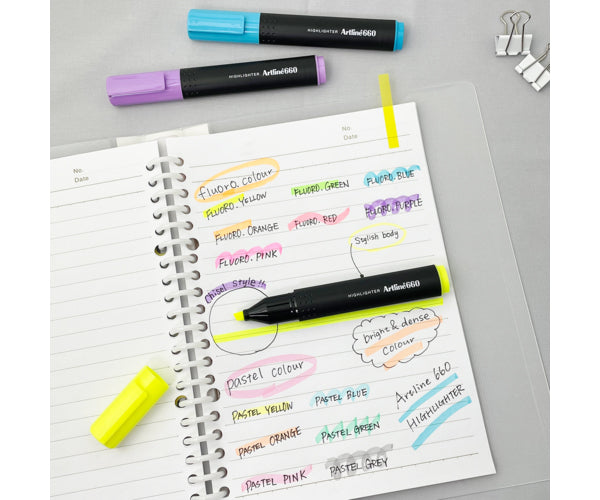 HIGHLIGHTER Artline660
HIGHLIGHTER Artline660
No.
Date
No.
Date
fluoro. colour
FLUORO. YELLOW
FLUORO. GREEN
FLUORO. BLUE
FLUORO. ORANGE
FLUORO. RED
FLUORO. PURPLE
FLUORO. PINK
Stylish body
Chisel Style !!
HIGHLIGHTER Artline660
bright & dense
colour
pastel colour
PASTEL YELLOW
PASTEL BLUE
PASTEL ORANGE
PASTEL GREEN
PASTEL PINK
PASTEL GREY
Artline 660
HIGHLIGHTER